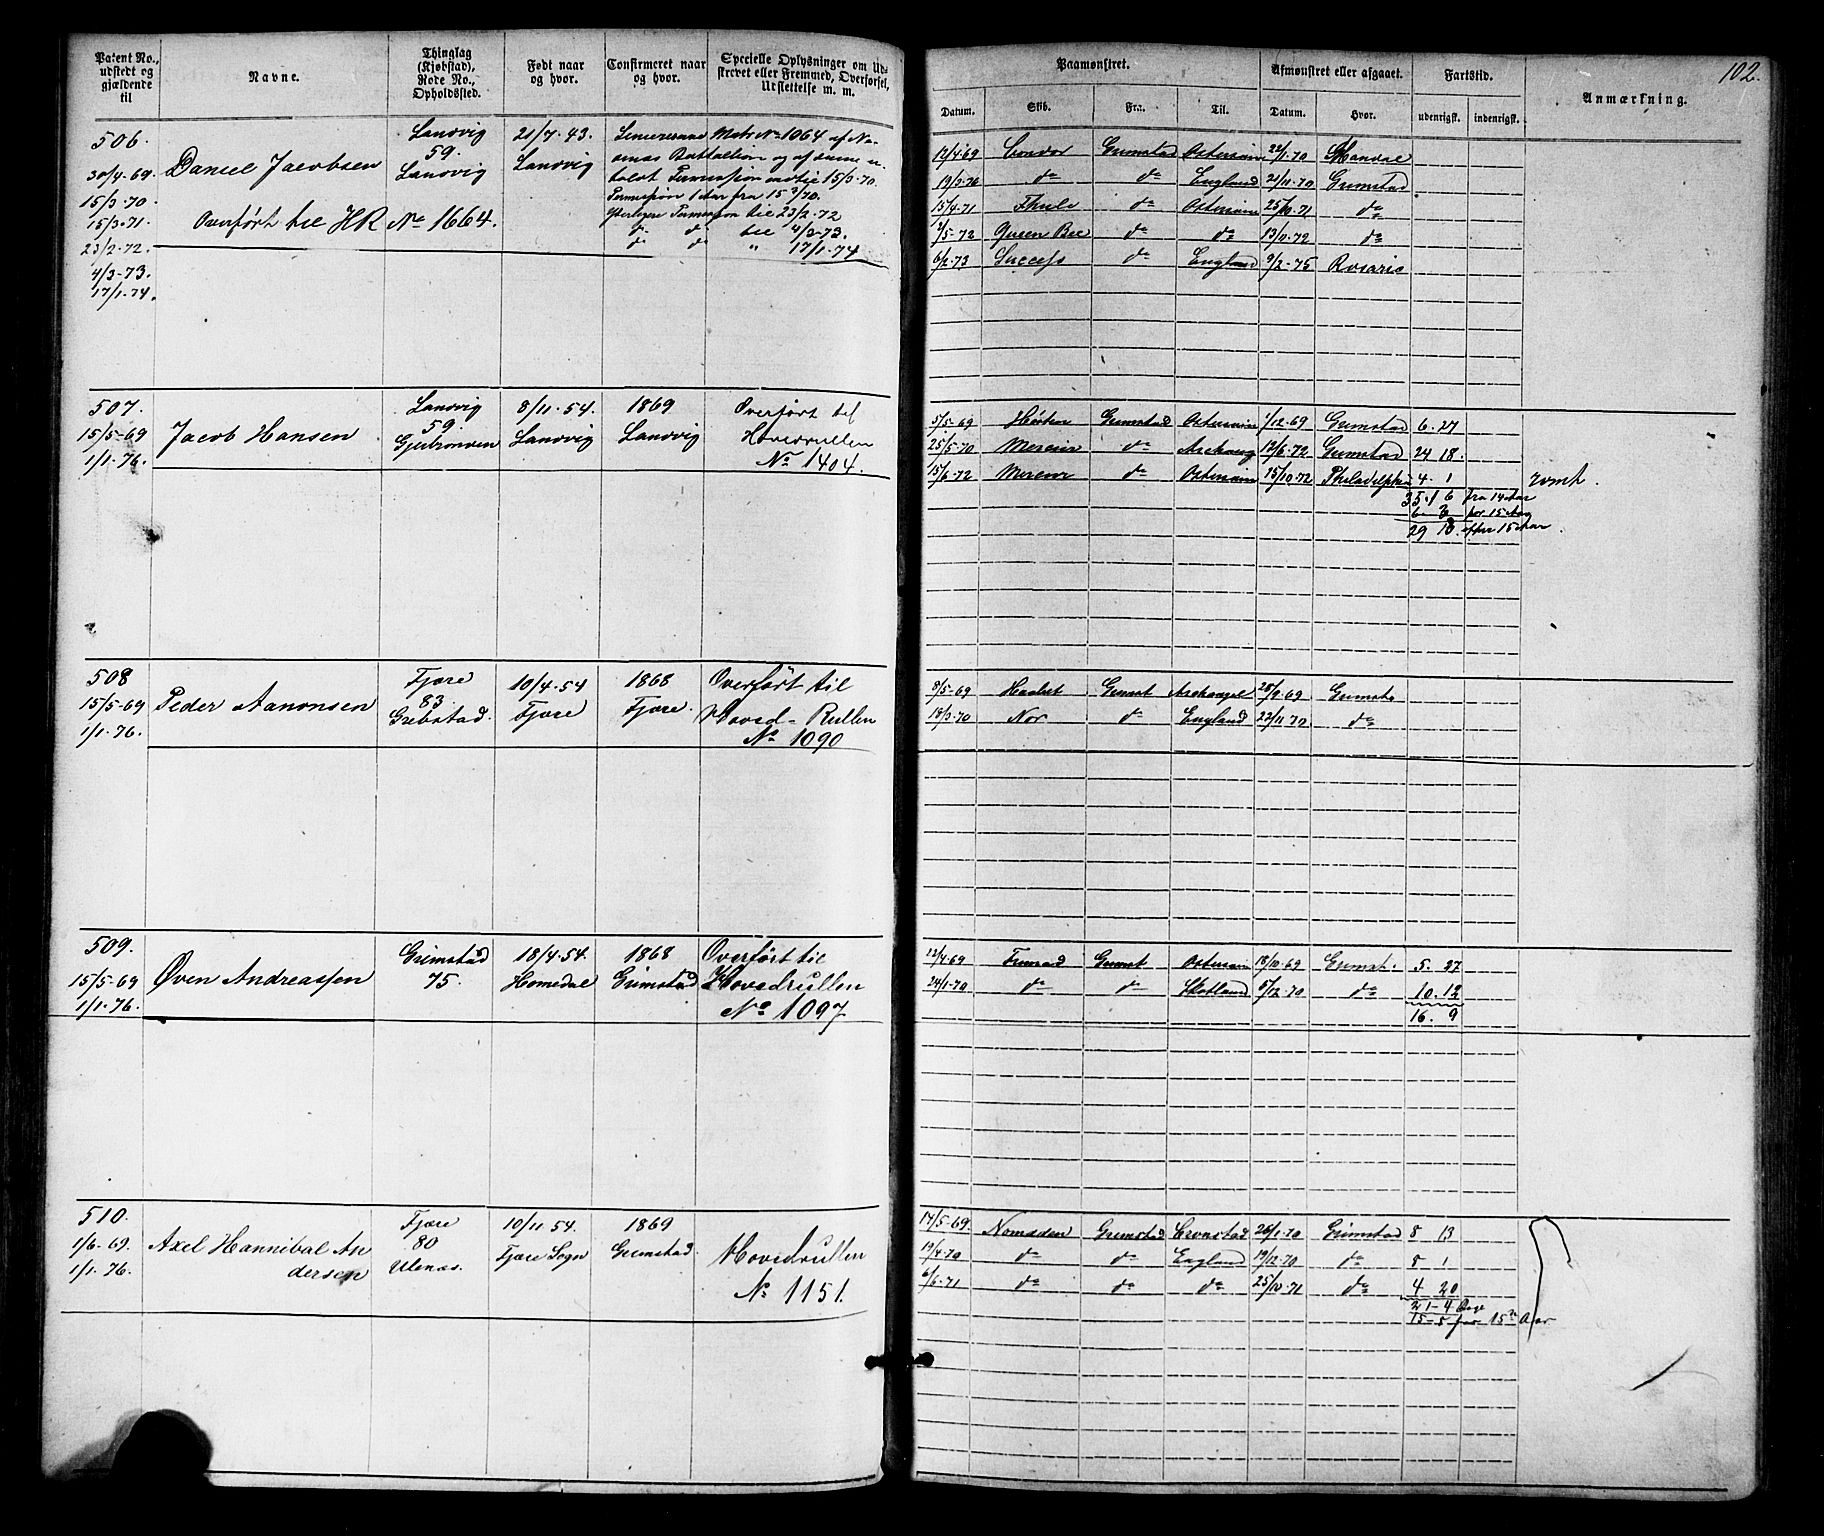 Patent No., udstedt og gjældende til
Navne.
Thinglag (Kjøbstad), Rode No., Opholdssted.
Født naar og hvor.
Confirmeret naar og hvor.
Specielle Oplysninger om Udskrevet eller Fremmed, Overførsel, Udslettelse m. m.
Paamønstret.
Afmønstret eller afgaaet.
Fartstid.
Anmærkning.
102.
Datum.
Skib.
Fra.
Til.
Datum.
Hvor.
udenrigsk.
indenrigsk.
506.
30/4-69.
15/3-70.
15/3-71.
23/2-72.
4/3-73.
17/1-74.
Daniel Jacobsen
Overført til HR No 1664.
Landvig
59.
Landvig
21/7.43.
Landvig
Mats No 1064 af
Battallion og af samme
Permission indtil 15/3-70.
Permission 1 Aar fra 15 3/70.
Yderligere Permission til 23/2-72
do do til 4/3-73.
do do " 17/1-74
12/4-69 Condor Grimstad Østersøen 22/1-70 Mandal
19/3-70 do do England 21/11-70 Grimstad
15/4-71 Thule do Østersøen 25/10-71 do
2/5-72 Queen Bee do do 13/9-72 do
6/2-73 Success do England 9/2-75 Rosario
507.
15/5-69
1/1-76.
Jacob Hansen
Landvig
59.
8/11-54.
Landvig
1869
Landvig
Overført til
Hovedrullen
No 1404.
5/5-69 Grimstad Østersøen 1/12-69 Grimstad 6. 27
25/5-70 Mercur do Archang 12/6-72 Grimstad 24 18.
15/6-72 Mercur do Østersøen 15/10-72 Philadelphia 4. 1 rømt.
35.16 fra 14 Aar
6. 3 før 15 Aar
29 13. efter 15 Aar.
508
15/5-69
1/1-76.
Peder Aanonsen
Fjære
83
Grebstad.
10/4-54
Fjære
1868
Fjære.
Overført til
Hoved-Rullen
No 1090
8/5-69 Haabet Grimst Archangel 28/9-69 Grimsta
18/3-70 Nor do England 22/11-70 do
509.
15/5-69
1/1-76.
Øven Andreassen
Grimstad
75.
18/4-54.
Homedal
1868
Grimstad
Overført til
Hovedrullen
No 1097
22/4-69 Grimst Østersøen 18/10-69 Grimst. 5. 27
24/1-70 do do Skotland 6/12-70 do 10.12
16. 9
510.
1/6-69.
1/1-76.
Axel Hannibal An
dersen
Fjære
80
Ulenæs.
10/11 54.
Fjære Sogn
1869
Grimstad.
Hovedrullen
No 1151.
17/5-69. Nomaden Grimstad Cronstad 26/1-70 Grimstad 8 13
19/4-70 do do England 19/12-70 do 8 1
6/6-71 do do do 25/10-71 do 4 20
21-4 Dage
15-5 før 15de Aar